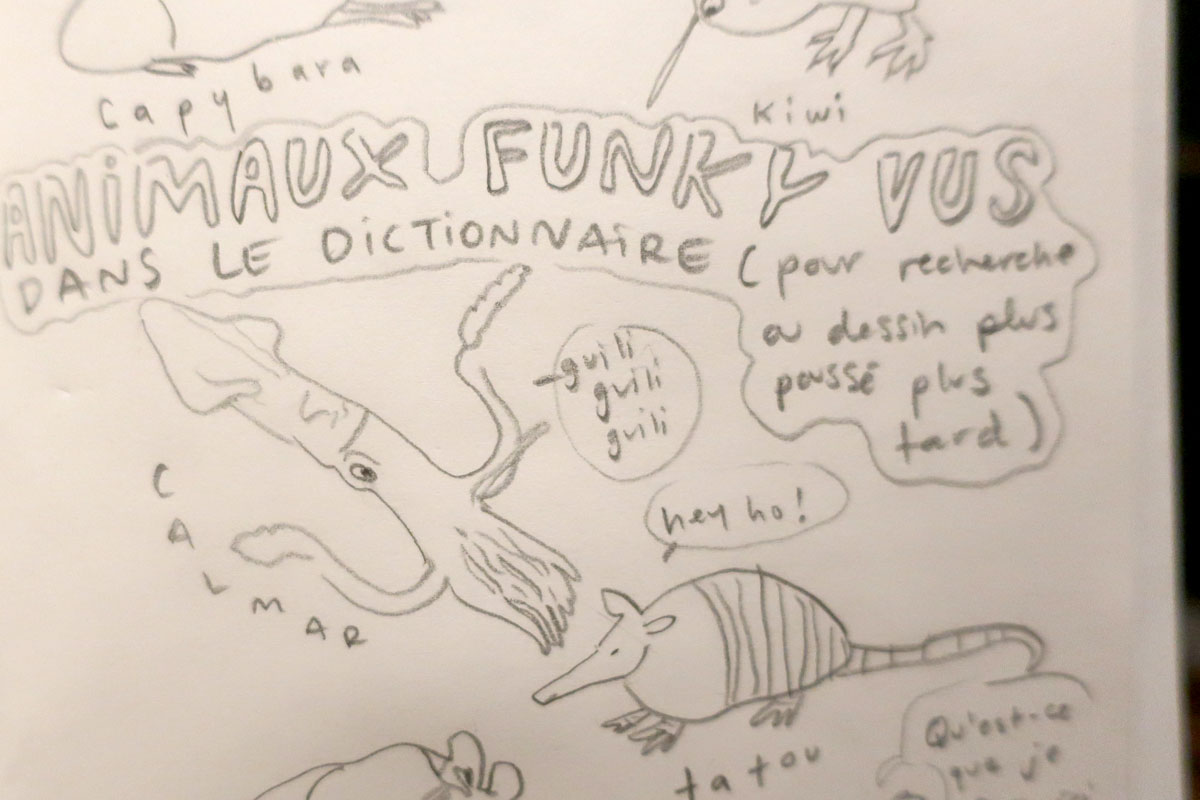 Capybara
Kiwi
ANiMAUX FUNKY VUS
DANS LE DiCTiONNAiRE (pour recherche
ou dessin plus
poussé plus
tard)
guili
guili
guili
hey ho!
CALMAR
tatou
Qu'est-ce
que je